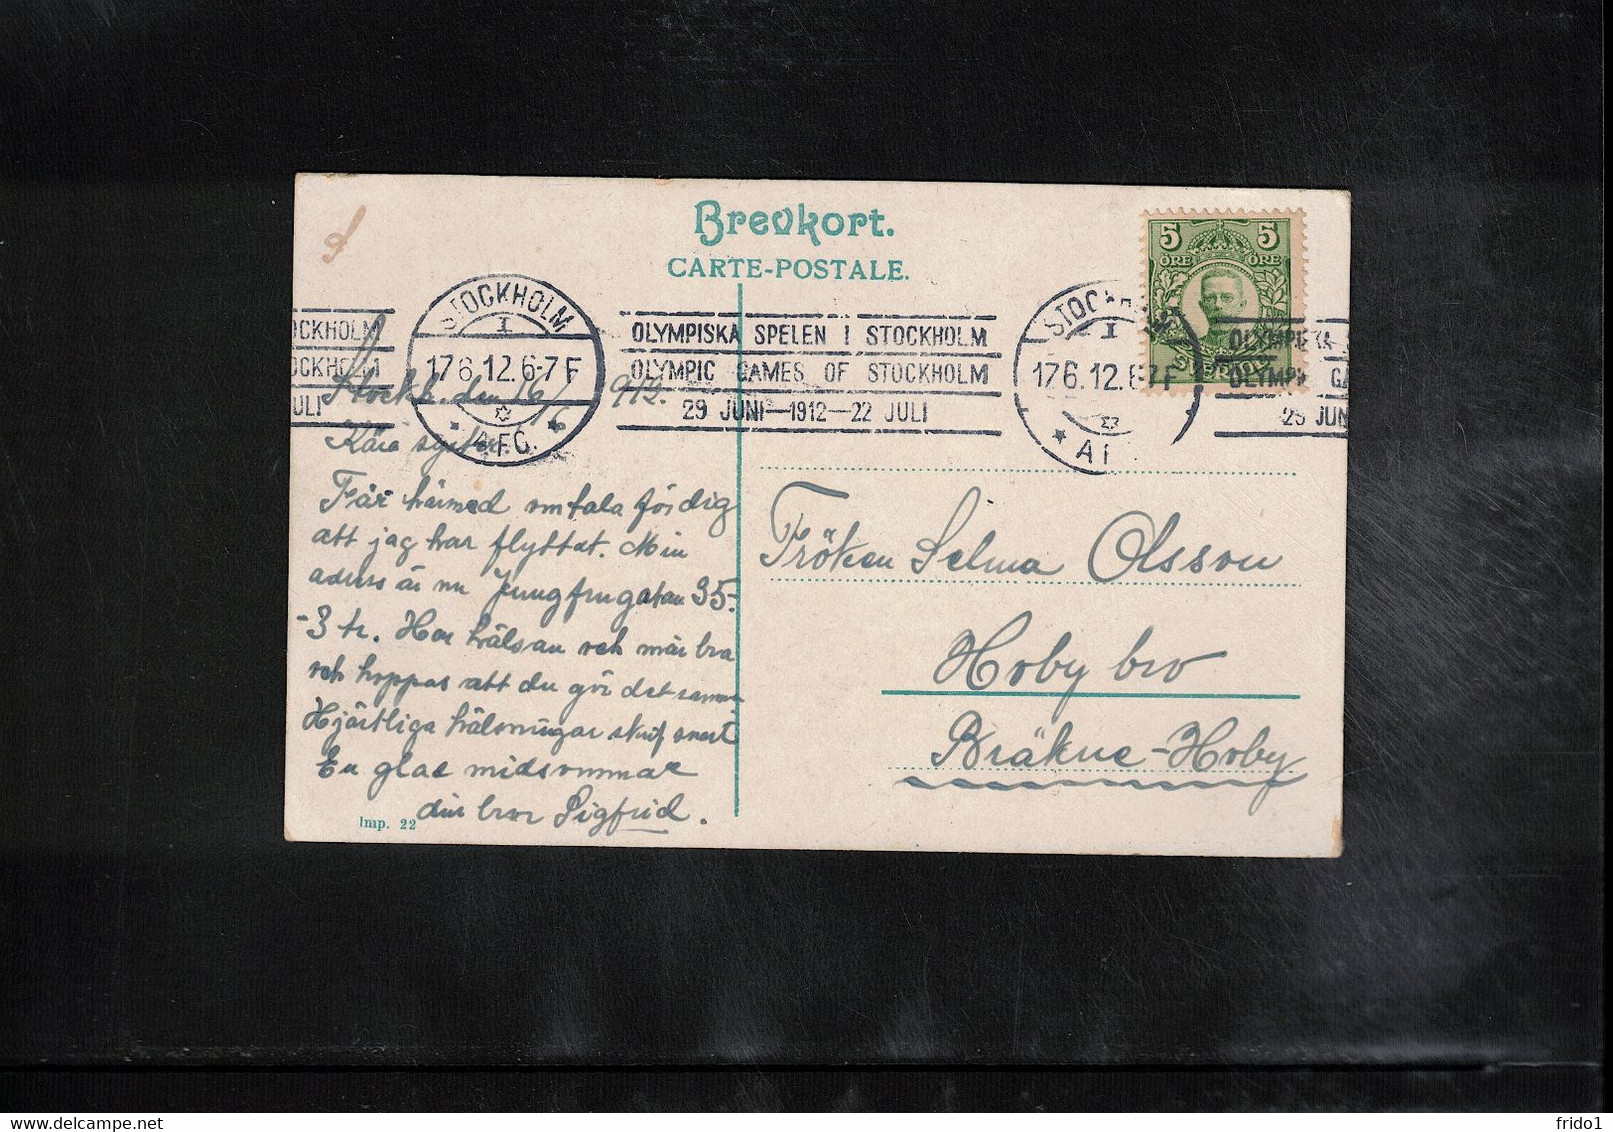 Brevkort.
CARTE-POSTALE.
5 5
ÖRE ÖRE
SVERIGE
STOCKHOLM
1
17.6.12.6-7 F
* A.F.G. *
OCKHOLM
OCKHOLM
ULI
OLYMPISKA SPELEN I STOCKHOLM
OLYMPIC GAMES OF STOCKHOLM
29 JUNI—1912—22 JULI
STOCKHOLM
1
17.6.12.6-7 F
* A F
OLYMPISKA
OLYMPIC GA
29 JUN
Stockh. den 16/6 912.
Kära syster.
Får härmed omtala för dig
att jag har flyttat. Min
adress är nu Jungfrugatan 35.
-3 tr. Har hälsan och mår bra
och hoppas att du gör det samma
Hjärtliga hälsningar skrif snart
En glad midsommar
din bror Sigfrid.
Imp. 22
Fröken Selma Olsson
Hoby bro
Bräkne-Hoby
frido1